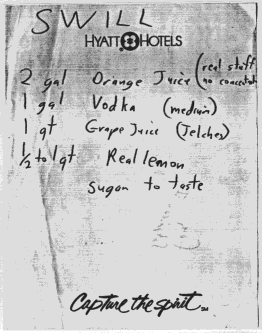 SWILL
HYATT HOTELS
(real stuff
2 gal Orange Juice (no concentrate
1 gal Vodka (medium)
1 qt Grape Juice (Welches)
1/2 to 1 qt Real lemon
Sugar to taste
Capture the spirit SM